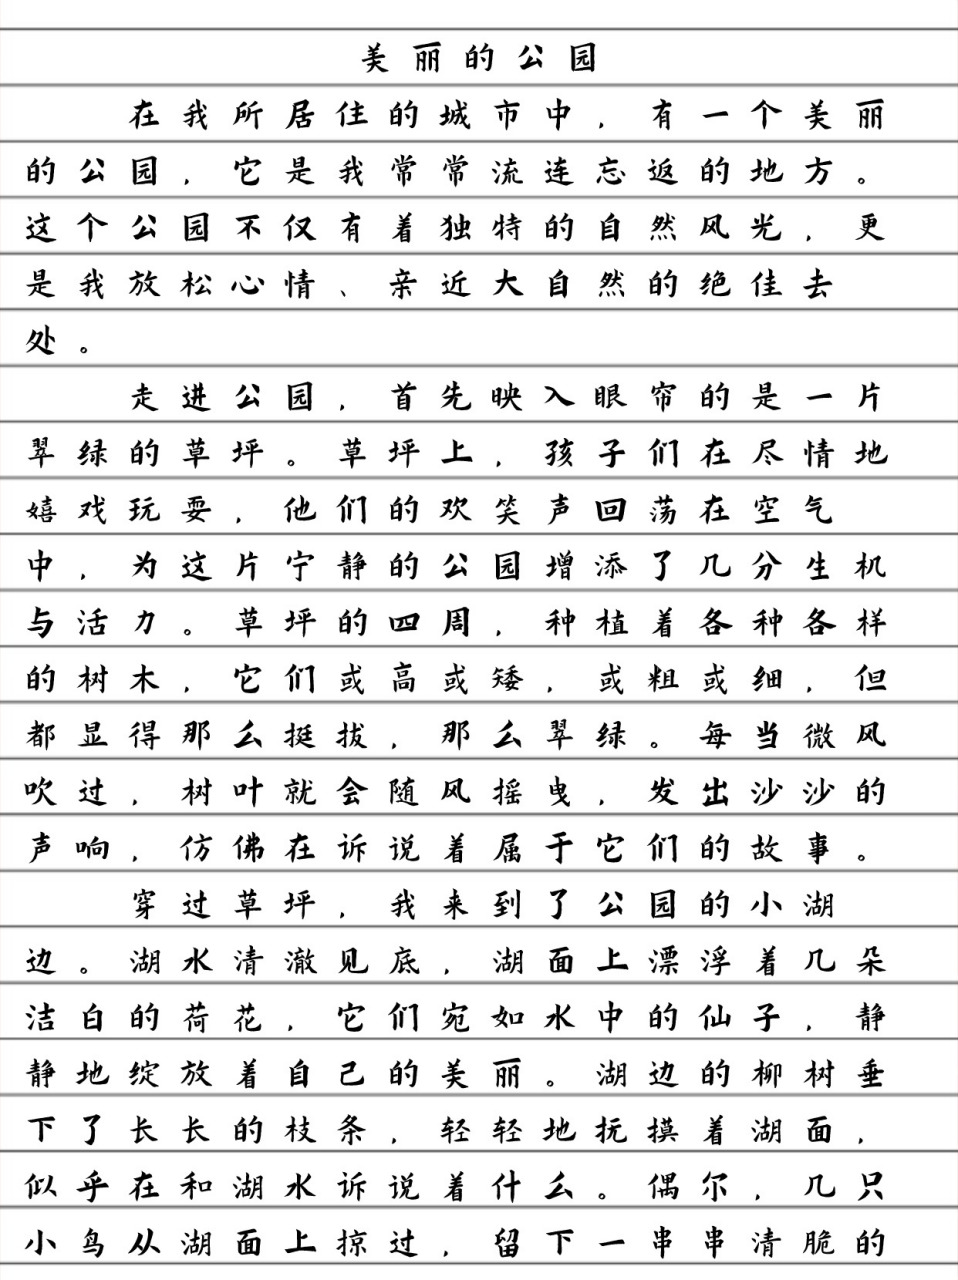 美丽的公园
在我所居住的城市中，有一个美丽
的公园，它是我常常流连忘返的地方。
这个公园不仅有着独特的自然风光，更
是我放松心情、亲近大自然的绝佳去
处。
走进公园，首先映入眼帘的是一片
翠绿的草坪。草坪上，孩子们在尽情地
嬉戏玩耍，他们的欢笑声回荡在空气
中，为这片宁静的公园增添了几分生机
与活力。草坪的四周，种植着各种各样
的树木，它们或高或矮，或粗或细，但
都显得那么挺拔，那么翠绿。每当微风
吹过，树叶就会随风摇曳，发出沙沙的
声响，仿佛在诉说着属于它们的故事。
穿过草坪，我来到了公园的小湖
边。湖水清澈见底，湖面上漂浮着几朵
洁白的荷花，它们宛如水中的仙子，静
静地绽放着自己的美丽。湖边的柳树垂
下了长长的枝条，轻轻地抚摸着湖面，
似乎在和湖水诉说着什么。偶尔，几只
小鸟从湖面上掠过，留下一串串清脆的